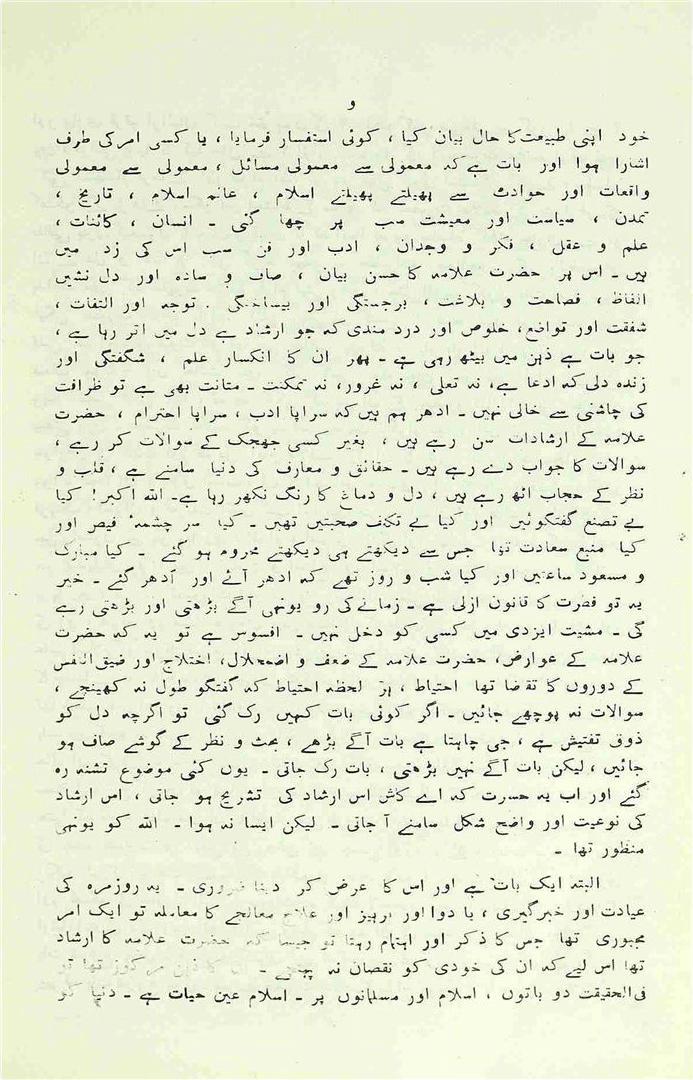 و
خود اپنی طبیعت کا حال بیان کیا ، کوئی استفسار فرمایا ، یا کسی امر کی طرف
اشارا ہوا اور بات ہے کہ معمولی سے معمولی مسائل ، معمولی سے معمولی
واقعات اور حوادث سے پھیلتے پھیلتے اسلام ، عالم اسلام ، تاریخ ،
تمدن ، سیاست اور معیشت سب پر چھا گئی ۔ انسان ، کائنات ،
علم و عقل ، فکر و وجدان ، ادب اور فن سب اس کی زد میں
ہیں ۔ اس پر حضرت علامہ کا حسن بیان ، صاف و سادہ اور دل نشیں
الفاظ ، فصاحت و بلاغت ، برجستگی اور بیساختگی . توجہ اور التفات ،
شفقت اور تواضع ، خلوص اور درد مندی کہ جو ارشاد ہے دل میں اتر رہا ہے ،
جو بات ہے ذہن میں بیٹھ رہی ہے ۔ پھر ان کا انکسار علم ، شگفتگی اور
زندہ دلی کہ ادعا ہے ، نہ تعلی ، نہ غرور ، نہ تمکنت ۔ متانت بھی ہے تو ظرافت
کی چاشنی سے خالی نہیں ۔ ادھر ہم ہیں کہ سراپا ادب ، سراپا احترام ، حضرت
علامہ کے ارشادات سن رہے ہیں ، بغیر کسی جھجک کے سوالات کر رہے ،
سوالات کا جواب دے رہے ہیں ۔ حقائق و معارف کی دنیا سامنے ہے ، قلب و
نظر کے حجاب اٹھ رہے ہیں ، دل و دماغ کا رنگ نکھر رہا ہے ۔ اللہ اکبر ! کیا
بے تصنع گفتگوئیں اور کیا بے تکلف صحبتیں تھیں ۔ کیا سر چشمہٴ فیض اور
کیا منبع سعادت تھا جس سے دیکھتے ہی دیکھتے محروم ہو گئے ۔ کیا مبارک
و مسعود ساعتیں اور کیا شب و روز تھے کہ ادھر آئے اور اُدھر گئے ۔ خیر
یہ تو فطرت کا قانون ازلی ہے ۔ زمانے کی رو یونہی آگے بڑھتی اور بڑھتی رہے
گی ۔ مشیت ایزدی میں کسی کو دخل نہیں ۔ افسوس ہے تو یہ کہ حضرت
علامہ کے عوارض ، حضرت علامہ کے ضعف و اضمحلال ، اختلاج اور ضیق النفس
کے دوروں کا تقاضا تھا احتیاط ، ہر لحظہ احتیاط کہ گفتگو طول نہ کھینچے ،
سوالات نہ پوچھے جائیں ۔ اگر کوئی بات کہیں رک گئی تو اگرچہ دل کو
ذوق تفتیش ہے ، جی چاہتا ہے بات آگے بڑھے ، بحث و نظر کے گوشے صاف ہو
جائیں ، لیکن بات آگے نہیں بڑھتی ، بات رک جاتی ۔ یوں کئی موضوع تشنہ رہ
گئے اور اب یہ حسرت کہ اے کاش اس ارشاد کی تشریح ہو جاتی ، اس ارشاد
کی نوعیت اور واضح شکل سامنے آ جاتی ۔ لیکن ایسا نہ ہوا ۔ اللہ کو یونہی
منظور تھا ۔
البتہ ایک بات ہے اور اس کا عرض کر دینا ضروری ۔ یہ روزمرہ کی
عیادت اور خبرگیری ، یا دوا اور پرہیز اور علاج معالجے کا معاملہ تو ایک امر
مجبوری تھا جس کا ذکر اور اہتمام رہتا تو جیسا کہ حضرت علامہ کا ارشاد
تھا اس لیے کہ ان کی خودی کو نقصان نہ پہنچے ۔ ان کا ذہن مرکوز تھا تو
فی الحقیقت دو باتوں ، اسلام اور مسلمانوں پر ۔ اسلام عین حیات ہے ۔ دنیا کو